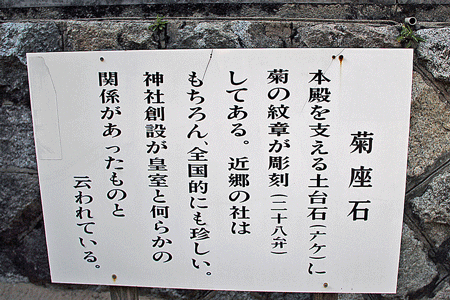 菊座石
本殿を支える土台石(六ケ)に
菊の紋章が彫刻(二十八弁)
してある。近郷の社は
もちろん、全国的にも珍しい。
神社創設が皇室と何らかの
関係があったものと
云われている。